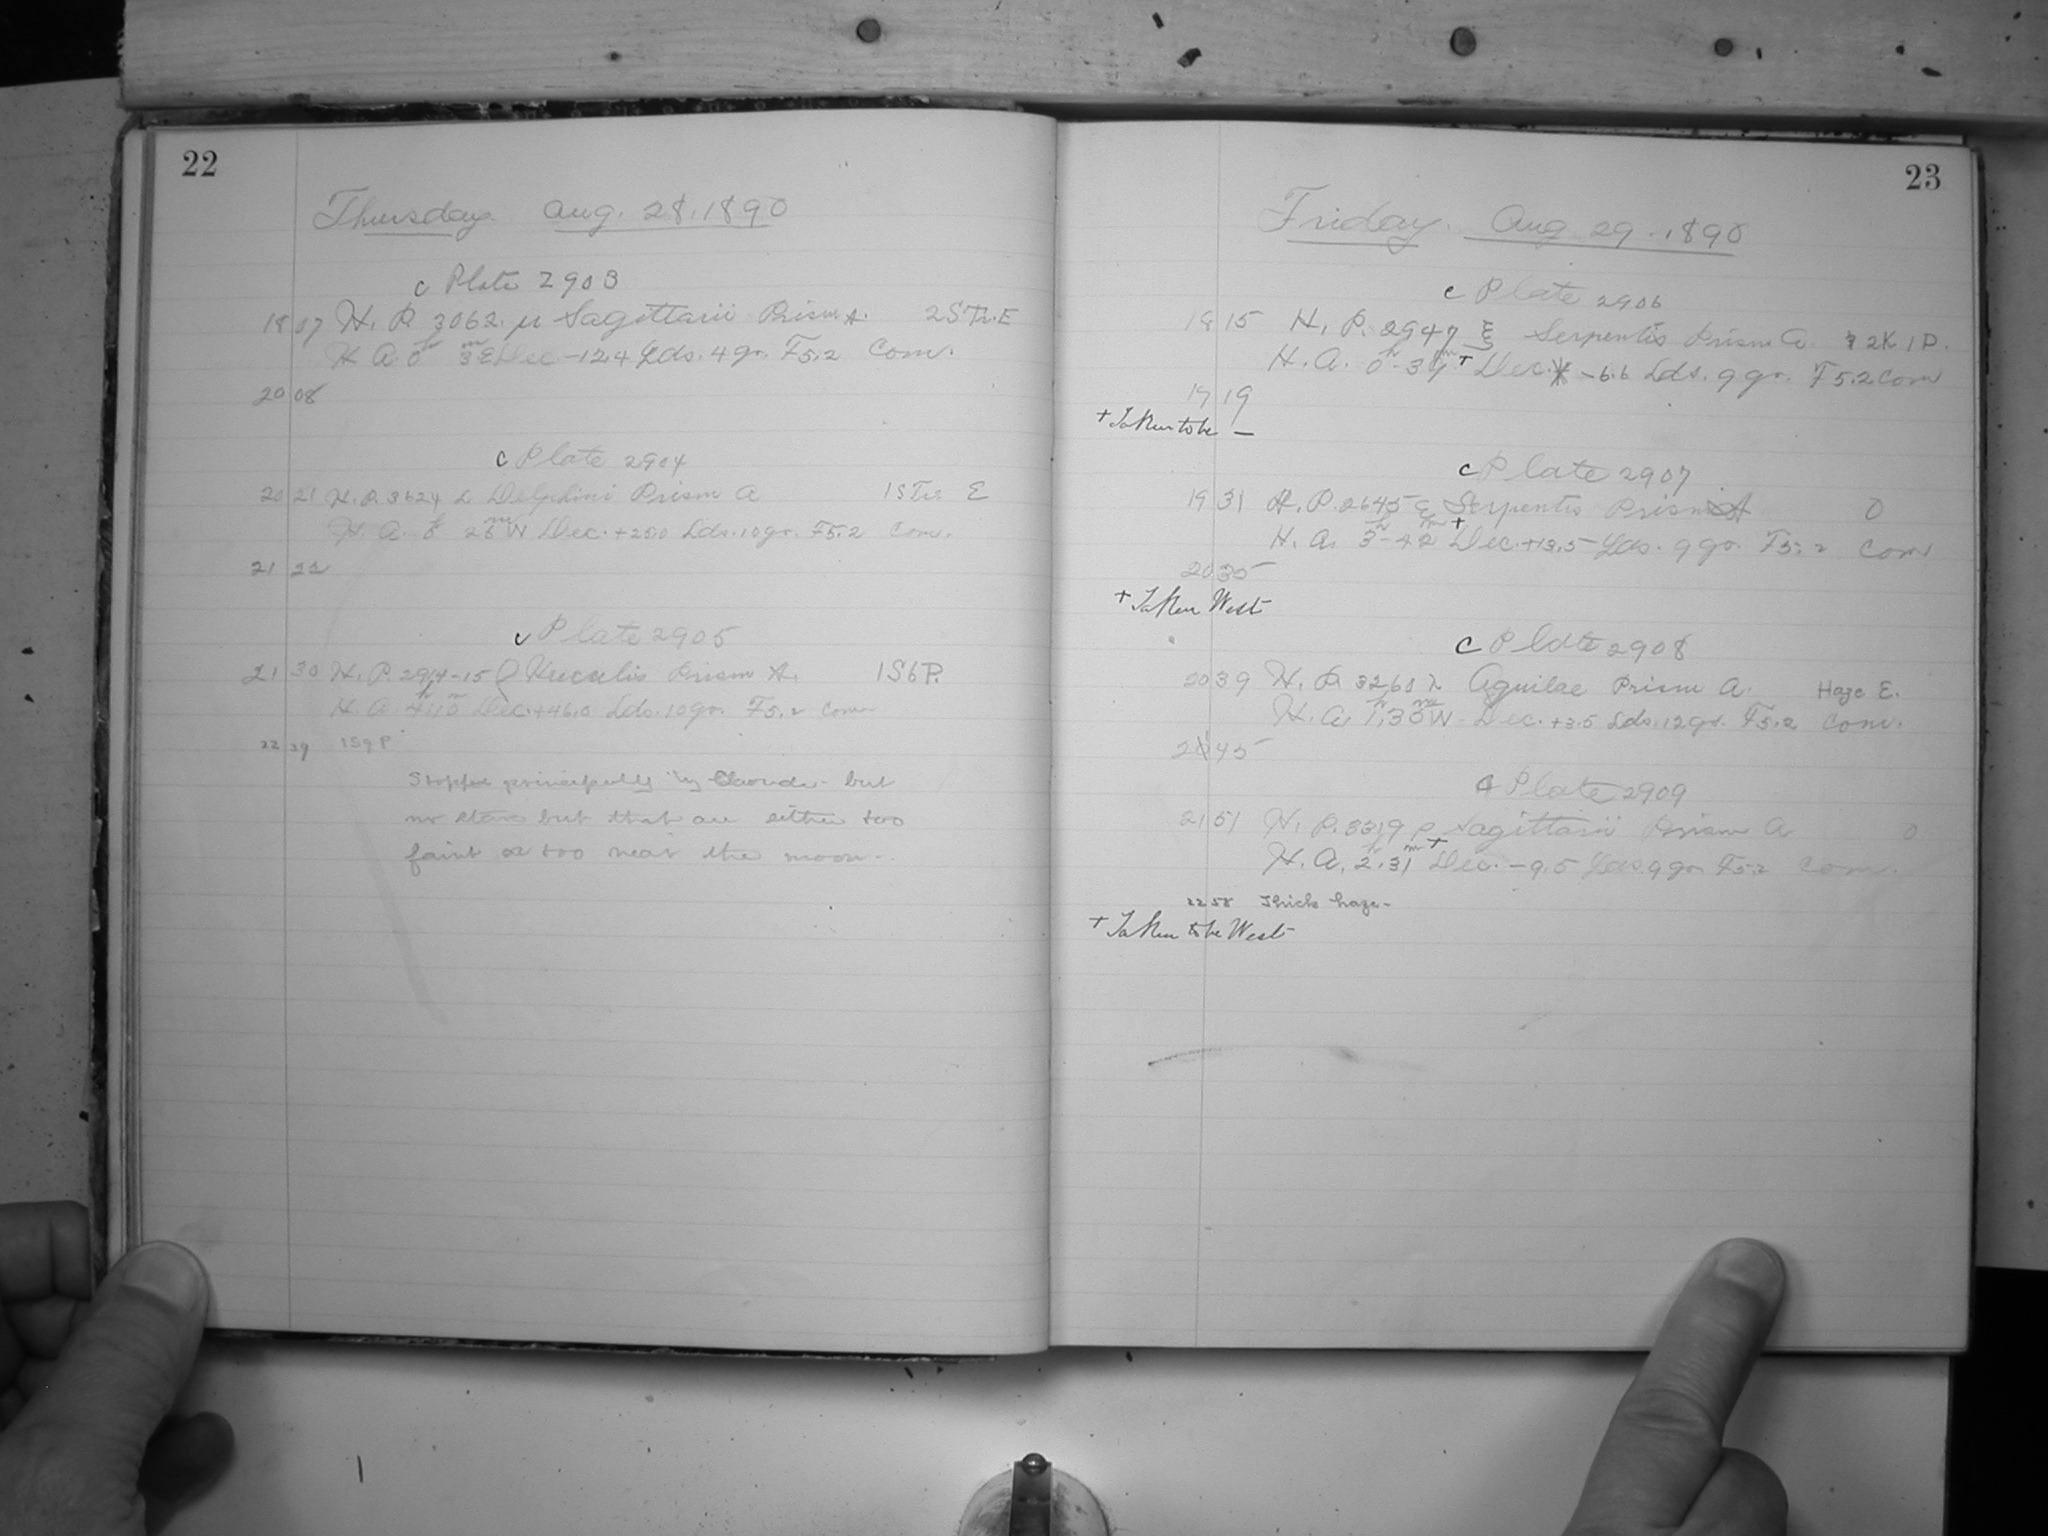 22
Thursday. Aug. 28. 1890
c Plate 2903
18 07 H. P. 3062. μ Sagittarii Prism A. 2STr.E
H. A. 0h 3mE Dec -12.4 Lds. 4 gr. F5.2 Com.
20 08
c Plate 2904
20 21 H. P. 3624 Delphini Prism A 1STr. E
H. A. 0h 26mW Dec. +25.0 Lds. 10 gr. F5.2 Com.
21 22
c Plate 2905
21 30 H. P. 2914-15 Herculis Prism A. 1S6P.
H. A. 4h10m Dec. +46.0 Lds. 10 gr. F5.2 Com
22 39 1S9P
Stopped principally by Clouds - but
no stars but that are either too
faint or too near the moon -
23
Friday. Aug 29. 1890
c Plate 2906
18 15 H. P. 2947 ξ Serpentis Prism A. 2K 1P.
H. A. 0h-37m+ Dec. -6.6 Lds. 9 gr. F5.2 Com
19 19
+ Taken to be —
c Plate 2907
19 31 H. P. 2645 ε Serpentis Prism A 0
H. A. 3h-42m+ Dec. +13.5 Lds. 9 gr. F5.2 Com
20 35
+ Taken West
c Plate 2908
20 39 H. P. 3260 λ Aquilae Prism A. Haze E.
H. A. 1h.36mW. Dec. +3.5 Lds. 12 gr. F5.2 Com.
45
Plate 2909
21 51 H. P. 3319 ρ Sagittarii Prism A 0
H. A. 2h.31m+ Dec. -9.5 Lds. 9 gr. F5.2 Com.
22 58 Thick haze -
+ Taken to be West